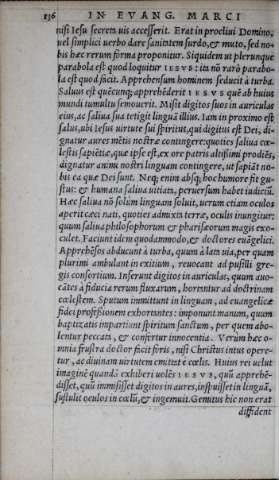 136 IN EVANG. MARCI
nisi Iesu secretius accesserit. Erat in procliui Domino,
uel simplici uerbo dare sanitatem surdo, & muto, sed no-
bis hæc rerum forma proponitur. Siquidem ut plerunque
parabola est quod loquitur IESVS: ita nõ raro parabo-
la est quod facit. Apprehensum hominem seducit à turba.
Saluus est quẽcunq; apprehẽderit IESVS quẽ ab huius
mundi tumultu semouerit. Misit digitos suos in auriculas
eius, ac saliua sua tetigit linguã illius. Iam in proximo est
salus, ubi Iesus uirtute sui spiritus, qui digitus est Dei, di-
gnatur aures mẽtis nostræ contingere: quoties saliua cœ-
lestis sapiẽtiæ, quæ ipse est, ex ore patris altissimi prodiẽs,
dignatur animi nostri linguam contingere, ut sapiãt no-
bis ea quæ Dei sunt. Neq; enim absq; hoc humore fit gu-
stus: & humana saliua uitiatũ, peruersum habet iudiciũ.
Hæc saliua nõ solùm linguam soluit, uerum etiam oculos
aperit cæci nati, quoties admixta terræ, oculis inungitur:
quum saliua philosophorum & pharisæorum magis exo-
culet. Faciunt idem quodammodo, & doctores euãgelici.
Apprehẽsos abducunt à turba, quum à lata uia, per quam
plurimi ambulant in exitium, reuocant ad pusilli gre-
gis consortium. Inserunt digitos in auriculas, quum auo-
cãtes à fiducia rerum fluxarum, hortantur ad doctrinam
cœlestem. Sputum immittunt in linguam, ad euangelicæ
fidei professionem exhortantes: imponunt manum, quum
baptizatis impartiunt spiritum sanctum, per quem abo-
lentur peccata, & confertur innocentia. Verum hæc o-
mnia frustra doctor facit foris, nisi Christus intus opere-
tur, ac diuinam uirtutem emittat è cœlis. Huius rei uelut
imaginẽ quandã exhiberi uolẽs IESVS, quũ apprehẽ-
disset, quũ immisisset digitos in aures, inspuisset in linguã,
sustulit oculos in cœlũ, & ingemuit. Gemitus hic non erat
diffident